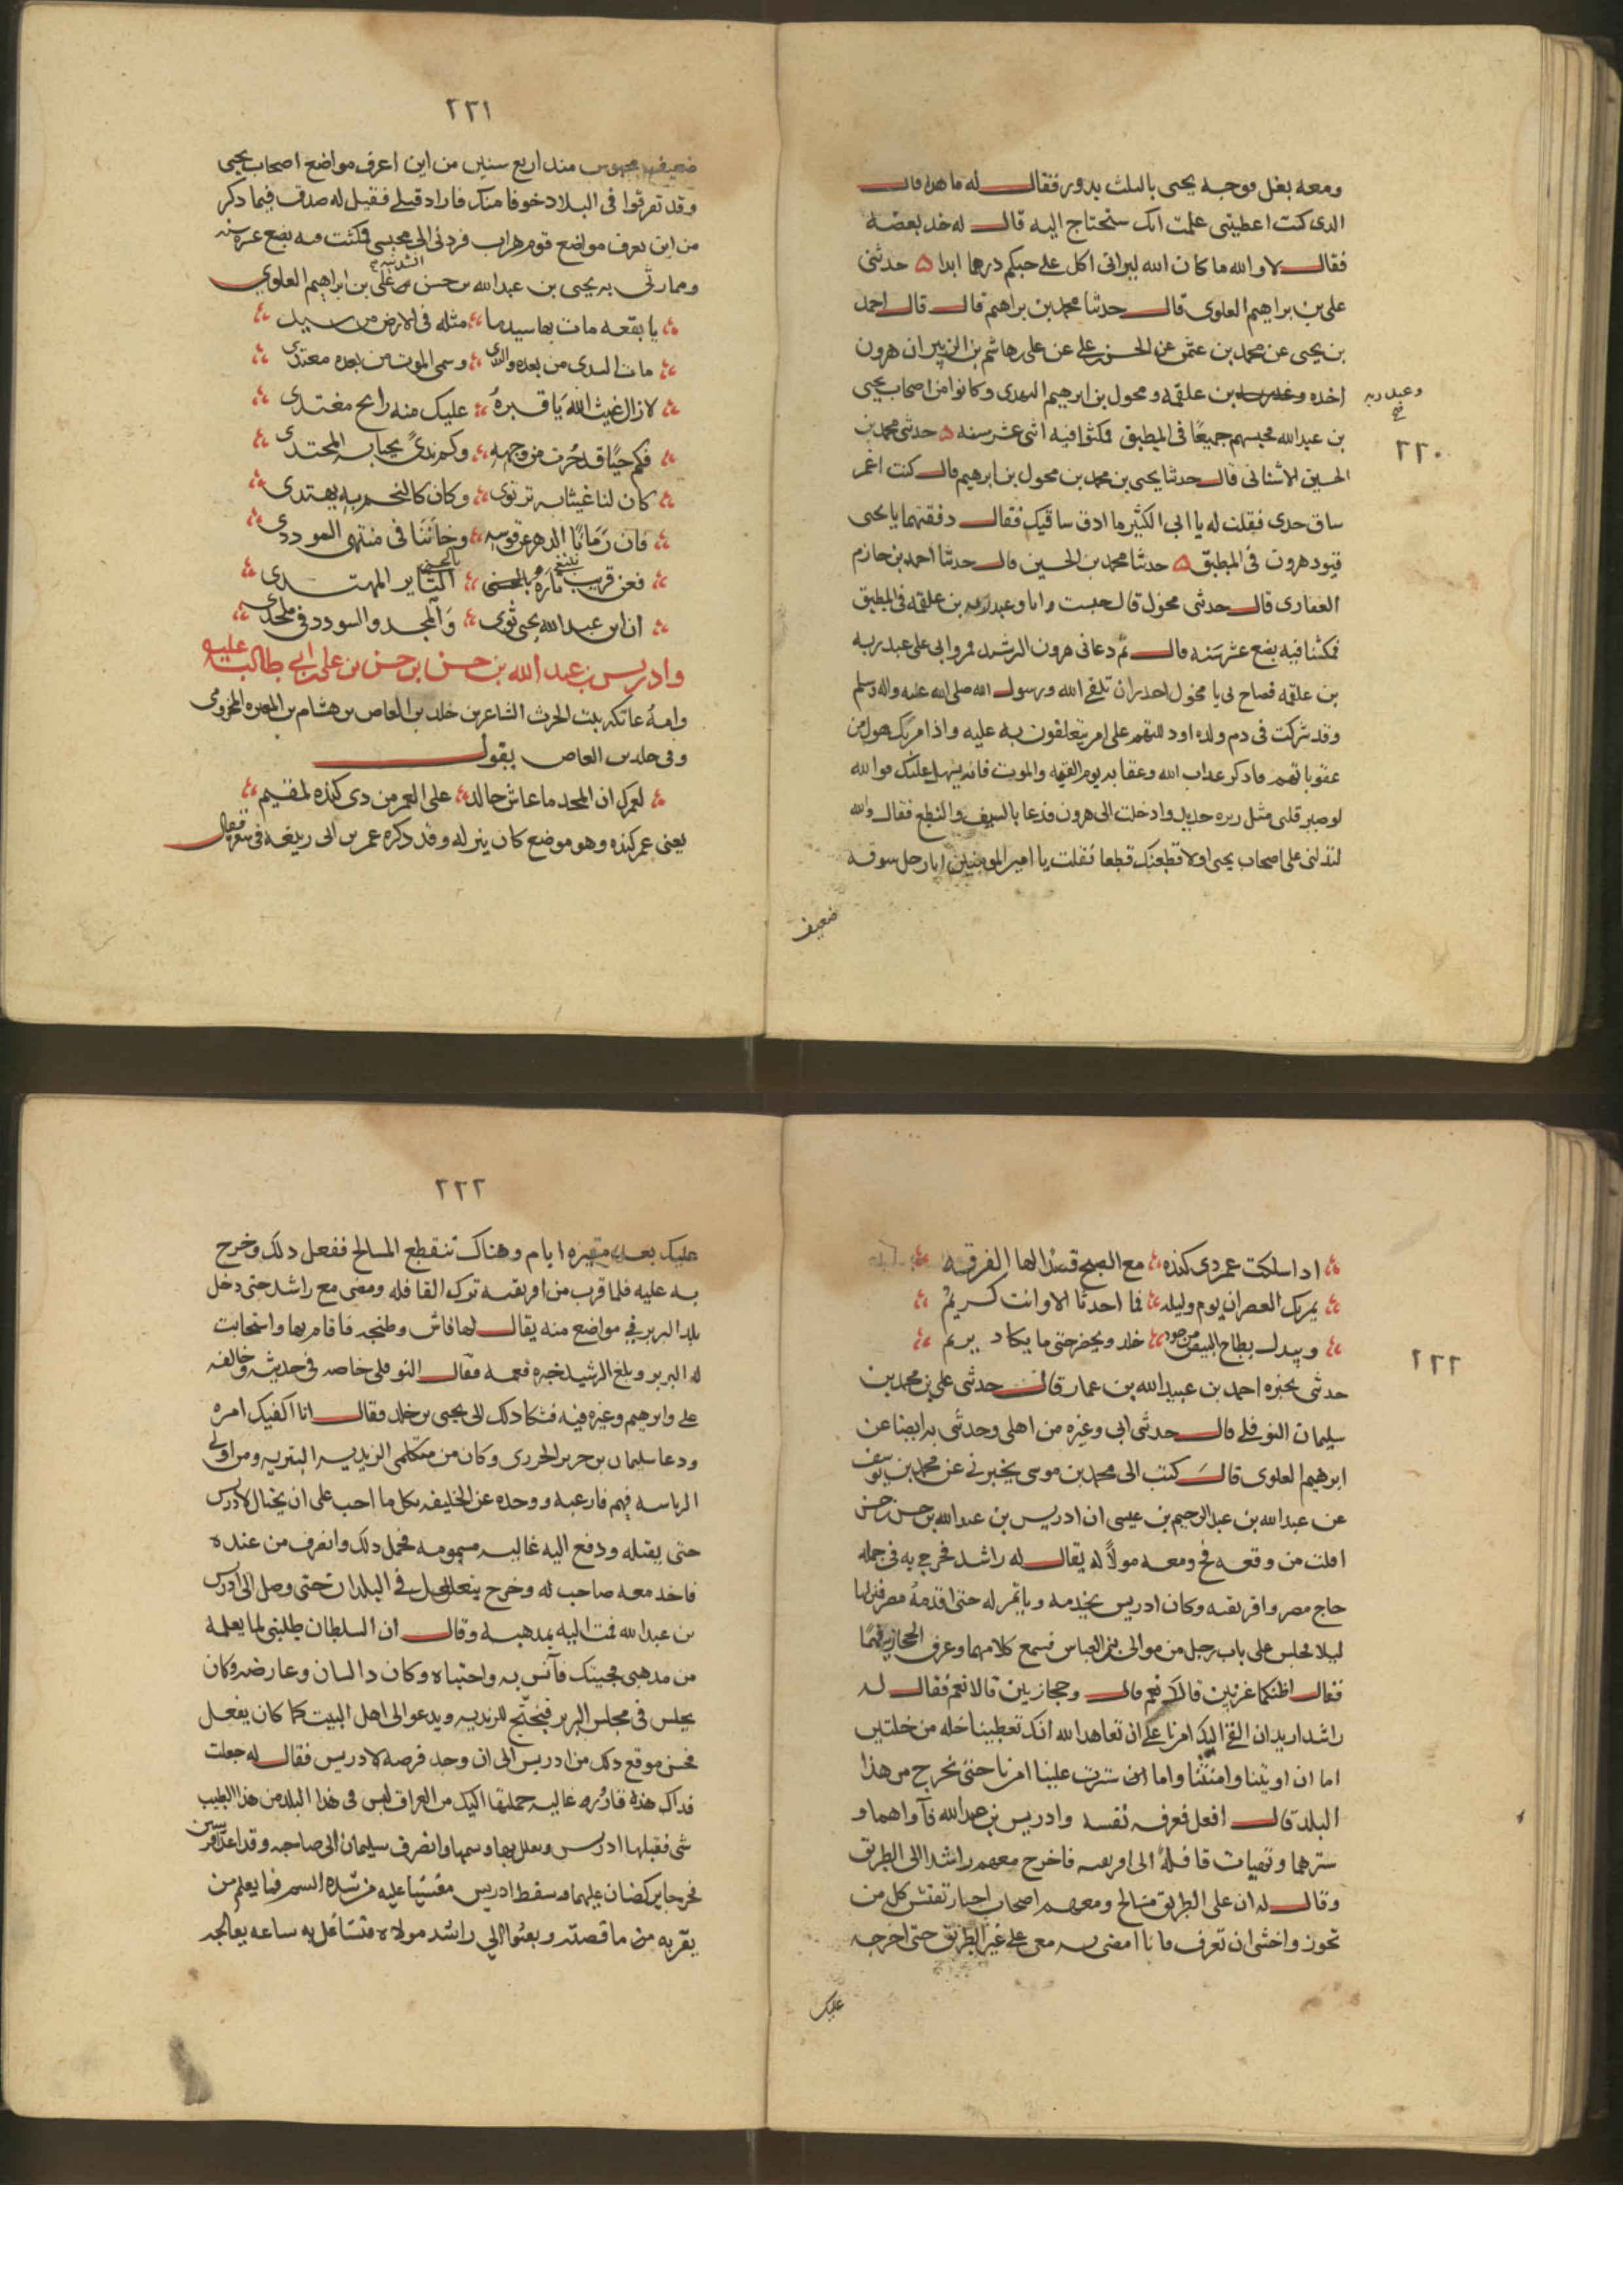 ومعه بغل فوجه يحيى بالثلث بدور فقال له ما هذا قال
الذى كنت اعطيتنى علمت انك ستحتاج اليه قال له خذ بعضه
فقال لا والله ما كان الله ليرانى اكل على حبكم درهما ابدا ۵ حدثنى
على بن براهيم العلوى قال حدثنا محمد بن براهيم قال قال احمد
بن يحيى عن محمد بن عثمن عن الحسن بن على عن على بن هاشم بن البريد ان هرون
اخذه وعبدربه بن علقمه ومخول بن ابرهيم النهدى وكانوا من اصحاب يحيى
وعبدربه
بن عبدالله فحبسهم جميعًا فى المطبق فمكثوا فيه اثنى عشر سنه ۵ حدثنى محمد بن
٢٢٠
الحسين الاشنانى قال حدثنا يحيى بن محمد بن مخول بن ابرهيم قال كنت اغمز
ساق جدى فقلت له يا ابى الكبير ما ادق ساقيك فقال دققهما يا يحيى
قيود هرون فى المطبق ۵ حدثنا محمد بن الحسين قال حدثنا احمد بن حازم
الغفارى قال حدثنى مخول قال حبست وانا وعبدربه بن علقمه فى المطبق
فمكثنا فيه بضع عشر سنه قال ثم دعانى هرون الرشيد فمروا بى على عبدربه
بن علقمه فصاح بى يا مخول احذر ان تلقى الله ورسول الله صلى الله عليه واله وسلم
وقد شركت فى دم ولده او دللتهم على امر يتعلقون به عليه واذا مر بك هول من
عقوباتهم فاذكر عذاب الله وعقابه يوم القيمه والموت فانه يسهل عليك فوالله
لو صير قلبى مثل زبره حديد وادخلت الى هرون فدعا بالسيف والنطع فقال والله
لتدلنى على اصحاب يحيى او لاقطعنك قطعا فقلت يا امير المومنين انا رجل سوقه
ضعيف
٢٢١
ضعيف محبوس منذ اربع سنين من اين اعرف مواضع اصحاب يحيى
وقد تفرقوا فى البلاد خوفا منك فاراد قتلى فقيل له صدق فيما ذكر
من اين يعرف مواضع قوم هراب فردنى الى محبسى فمكثت فيه بضع عشره سنه
ومما رثى به يحيى بن عبدالله بن حسن انشدنيه على بن ابراهيم العلوي
يا بقعه مات بها سيد ما مثله فى الارض من سيد
مات الهدى من بعده والندى وسمى الموت من بعده معتدى
لا زال غيث الله يا قبره عليك منه رايح مغتدى
فكم حيًا قد حُزت من وجهه وكم ندىً يحيا به المجتدى
كان لنا غيثا به نرتوى وكان كالنجم به يهتدى
فان رمانا الدهر عن قوسه وخاننا فى منتهى السودد
فعن قريب نبتغى ثاره بالحسنى الثاير المهتدى
ان ابن عبدالله يحيى ثوى والمجد والسودد فى ملحد
وادريس بن عبد الله بن حسن بن حسن بن على بن ابى طالب عليه
وامه عاتكه بنت الحرث الشاعر بن خلد بن العاص بن هشام بن المغيره المخزومى
وفى خلد بن العاص يقول
لعمرك ان المجد ما عاش خالد على العمر من ذى كنده لمقيم
يعنى عمر كنده وهو موضع كان ينزله وقد ذكره عمر بن ابى ربيعه فى شعره فقال
اذا سلكت عمر ذى كنده مع الصبح قصدا لها الفرقد
يمر بك العصران يوم وليله فما احدثا الا وانت كريم
ويبدل بطاح البيض من جود خلد ويحفر حتى ما يكاد يريم
٢٢٢
حدثنى بخبره احمد بن عبيدالله بن عمار قال حدثنى على بن محمد بن
سليمان النوفلى قال حدثنى ابى وغيره من اهلى وحدثنى به ايضا على بن
ابرهيم العلوى قال كتب الى محمد بن موسى يخبرنى عن محمد بن يوسف
عن عبدالله بن عبدالرحيم بن عيسى ان ادريس بن عبدالله بن حسن بن حسن
افلت من وقعه فخ ومعه مولًا له يقال له راشد فخرج به فى جمله
حاج مصر وافريقيه وكان ادريس يخدمه وياتمر له حتى اقدمه مصر فنزلها
ليلا فجلس على باب رجل من موالى بنى العباس فسمع كلامهما وعرف الحجازيه فيهما
فقال اظنكما غربيين قالا نعم قال وحجازيين قالا نعم فقال له
راشد اريد ان القى اليك امرنا على ان تعاهد الله انك تعطينا خله من خلتين
اما ان اويتنا وامنتنا واما ان سترت علينا امرنا حتى نخرج من هذا
البلد قال افعل فعرفه نفسه وادريس بن عبدالله فآواهما و
سترهما وتهيات قافلة الى افريقيه فاخرج معهم راشدا الى الطريق
وقال له ان على الطريق مسالح ومعهم اصحاب اخبار تفتش كل من
تجوز واخشى ان تعرف فانا امضى به معى على غير الطريق حتى اخرجه
عليك
٢٢٣
عليك بعد مسيره ايام وهناك تنقطع المسالح ففعل ذلك وخرج
به عليه فلما قرب من افريقيه ترك القافله ومضى مع راشد حتى دخل
بلد البربر فى مواضع منه يقال لها فاس وطنجه فاقام بها واستجابت
له البربر وبلغ الرشيد خبره فغمه فقال النوفلى خاصه فى حديثه وخالفه
على وابرهيم وغيره فيه فشكا ذلك الى يحيى بن خلد فقال انا اكفيك امره
ودعا سليمان بن جرير الجررى وكان من متكلمى الزيديه البتريه ومن اولى
الرياسه فيهم فارغبه ووعده عن الخليفه بكل ما احب على ان يحتال لادريس
حتى يقتله ودفع اليه غاليه مسمومه فحمل ذلك وانصرف من عنده
فاخذ معه صاحب له وخرج يتغلغل فى البلدان حتى وصل الى ادريس
بن عبدالله فمت اليه بمذهبه وقال ان السلطان طلبنى لما يعلمه
من مذهبى فجيتك فآنس به واجتباه وكان ذا لسان وعارضه وكان
يجلس فى مجلس البربر فيحتج للزيديه ويدعو الى اهل البيت كما كان يفعل
فحسن موقع ذلك من ادريس الى ان وجد فرصه لادريس فقال له جعلت
فداك هذه قاروره غاليه حملتها اليك من العراق ليس فى هذا البلد من هذا الطيب
شى فقبلها ادريس وتغلل بها وشمها وانصرف سليمان الى صاحبه وقد اعد فرسين
فخرجا يركضان عليهما وسقط ادريس مغشيا عليه من شده السم فما يعلم من
يقربه من ما قصته وبعثوا الى راشد مولاه فتشاغل به ساعه يعالجه